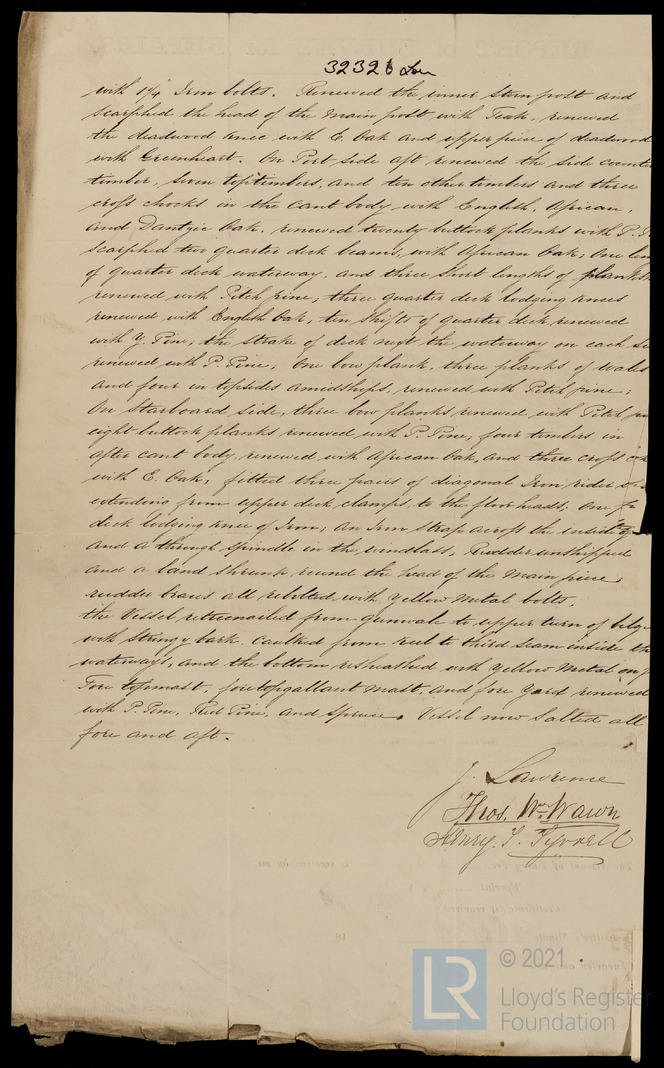 REPORT of SURVEY for REPAIRS
32326 Lon
with 1¼ Iron bolts. Renewed the inner Stern post and
scarphed the head of the Main post with Teak, renewed
the deadwood knee with E. Oak and upper piece of deadwood
with Greenheart. On Port side aft renewed the side counter
timber, seven toptimbers, and ten other timbers and three
cross chocks in the cant body with English, African,
and Dantzic Oak, renewed twenty buttock planks with P. P
scarphed two quarter deck beams, with African Oak, One len
of quarter deck waterway, and three short lengths of
renewed with Pitch pine; three quarter deck lodging knees
renewed with English Oak, ten shifts of quarter deck renewed
with Y. Pine, the strake of deck next the waterway on each si
renewed with P. Pine; One bow plank, three planks of wales
and four in topsides amidships, renewed with Pitch pine;
On Starboard side, three bow planks renewed with Pitch
eight buttock planks renewed with P. Pine; four timbers in
after cant body, renewed with African Oak, and three cross
with E. Oak, fitted three pairs of diagonal Iron rider
extending from upper deck clamps, to the floorheads; One
deck lodging knee of Iron; An Iron Strap across the inside
and a through spindle in the windlass, Rudder unshipped
and a band shrunk round the head of the Main piece
rudder braces all rebolted with Yellow Metal bolts.
the Vessel retreenailed from gunwale to upper turn of bilge
with Stringy bark. Caulked from keel to third seam inside the
waterways, and the bottom resheathed with Yellow Metal on
Fore topmast, foretopgallant mast, and fore Yard renewed
with P. Pine, Red Pine, and Spruce. Vessel now Salted all
fore and aft.
J. Lawrence
Thos. Wm. Wawn
Henry. T. Tyrrell
LR
© 2021
Lloyd's Register
Foundation